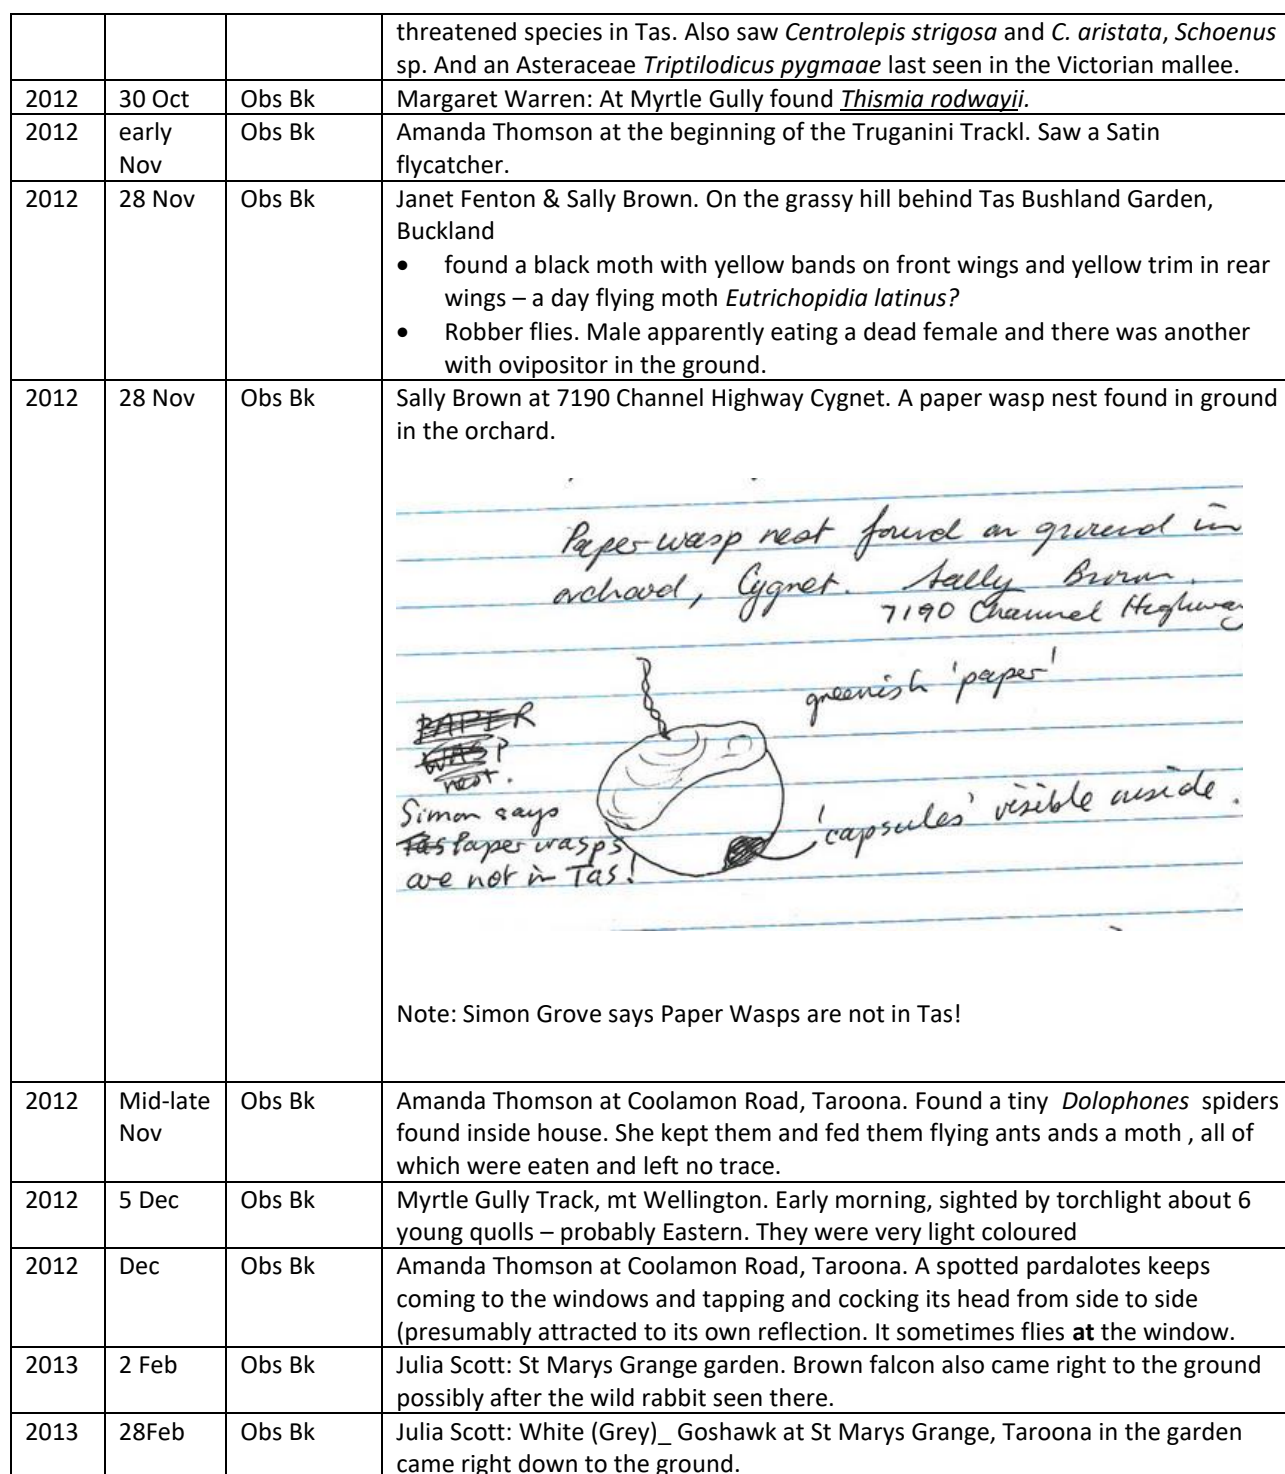 threatened species in Tas. Also saw Centrolepis strigosa and C. aristata, Schoenus
sp. And an Asteraceae Triptilodicus pygmaae last seen in the Victorian mallee.
2012 30 Oct Obs Bk Margaret Warren: At Myrtle Gully found Thismia rodwayii.
2012 early Nov Obs Bk Amanda Thomson at the beginning of the Truganini Trackl. Saw a Satin
flycatcher.
2012 28 Nov Obs Bk Janet Fenton & Sally Brown. On the grassy hill behind Tas Bushland Garden,
Buckland
• found a black moth with yellow bands on front wings and yellow trim in rear
wings – a day flying moth Eutrichopidia latinus?
• Robber flies. Male apparently eating a dead female and there was another
with ovipositor in the ground.
2012 28 Nov Obs Bk Sally Brown at 7190 Channel Highway Cygnet. A paper wasp nest found in ground
in the orchard.
Paper-wasp nest found on ground in
orchard, Cygnet. Sally Brown.
7190 Channel Highway
greenish 'paper'
PAPER
WASP
nest.
Simon says
Tas Paper wasps
are not in Tas!
'capsules' visible inside.
Note: Simon Grove says Paper Wasps are not in Tas!
2012 Mid-late Nov Obs Bk Amanda Thomson at Coolamon Road, Taroona. Found a tiny Dolophones spiders
found inside house. She kept them and fed them flying ants ands a moth , all of
which were eaten and left no trace.
2012 5 Dec Obs Bk Myrtle Gully Track, mt Wellington. Early morning, sighted by torchlight about 6
young quolls – probably Eastern. They were very light coloured
2012 Dec Obs Bk Amanda Thomson at Coolamon Road, Taroona. A spotted pardalotes keeps
coming to the windows and tapping and cocking its head from side to side
(presumably attracted to its own reflection. It sometimes flies at the window.
2013 2 Feb Obs Bk Julia Scott: St Marys Grange garden. Brown falcon also came right to the ground
possibly after the wild rabbit seen there.
2013 28Feb Obs Bk Julia Scott: White (Grey)_ Goshawk at St Marys Grange, Taroona in the garden
came right down to the ground.